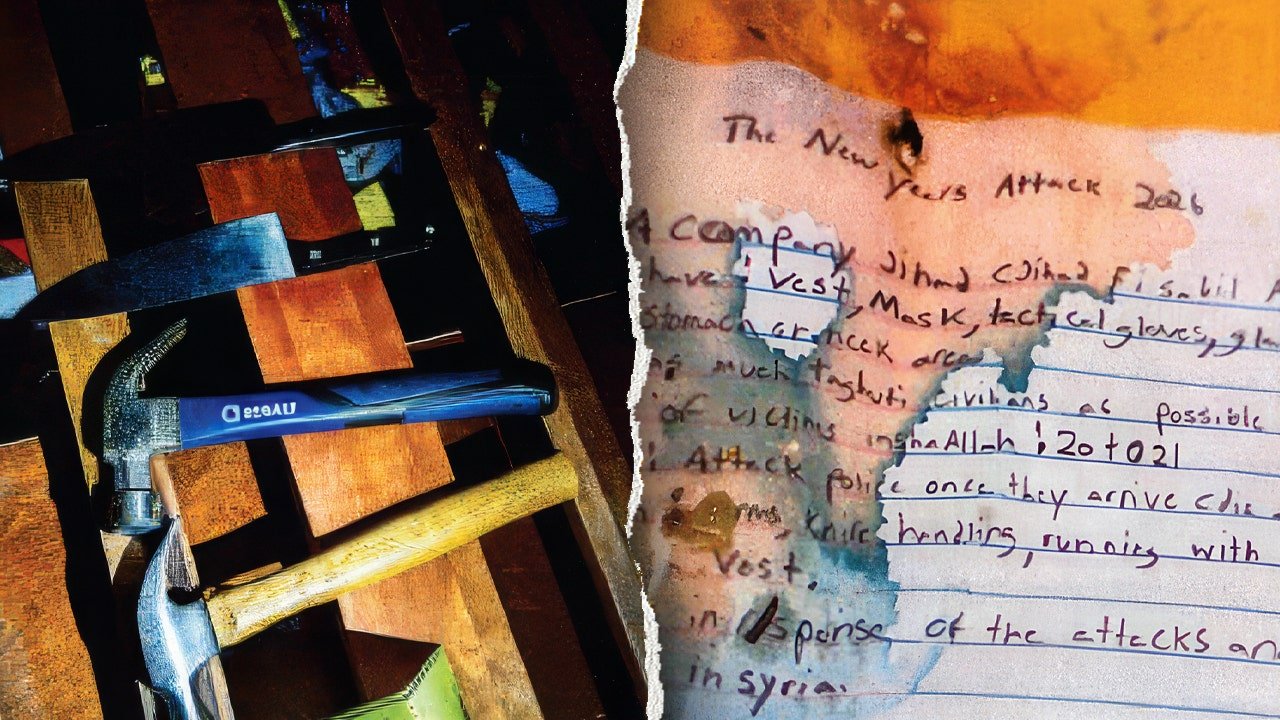 The New Years Attack 2026
A Company Jihad (Jihad fi sabil
have Vest, Mask, tactical gloves,
stomach or neck area
much taghuti civilians as possible
of victims inshaAllah! 20 to 21
Attack police once they arrive
knife handling, running with
Vest.
in response of the attacks
in syria.